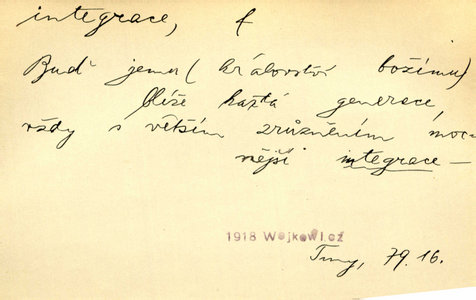 integrace, f
Buď jemu (království božímu)
blíže každá generace
vždy s větším zrůzněním moc-
nější integrace —
1918 Wojkowicz
Tmy, 79.16.